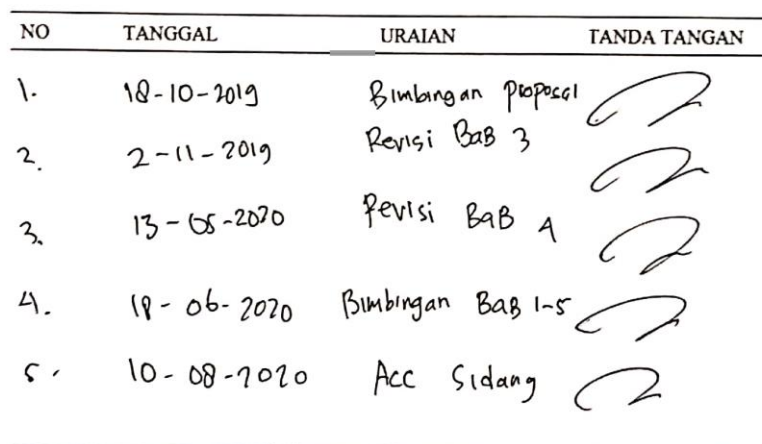 NO TANGGAL URAIAN TANDA TANGAN
1. 18-10-2019 Bimbingan Proposal
2. 2-11-2019 Revisi BaB 3
3. 13-05-2020 Revisi BaB 4
4. 18-06-2020 Bimbingan BaB 1-5
5. 10-08-2020 Acc Sidang